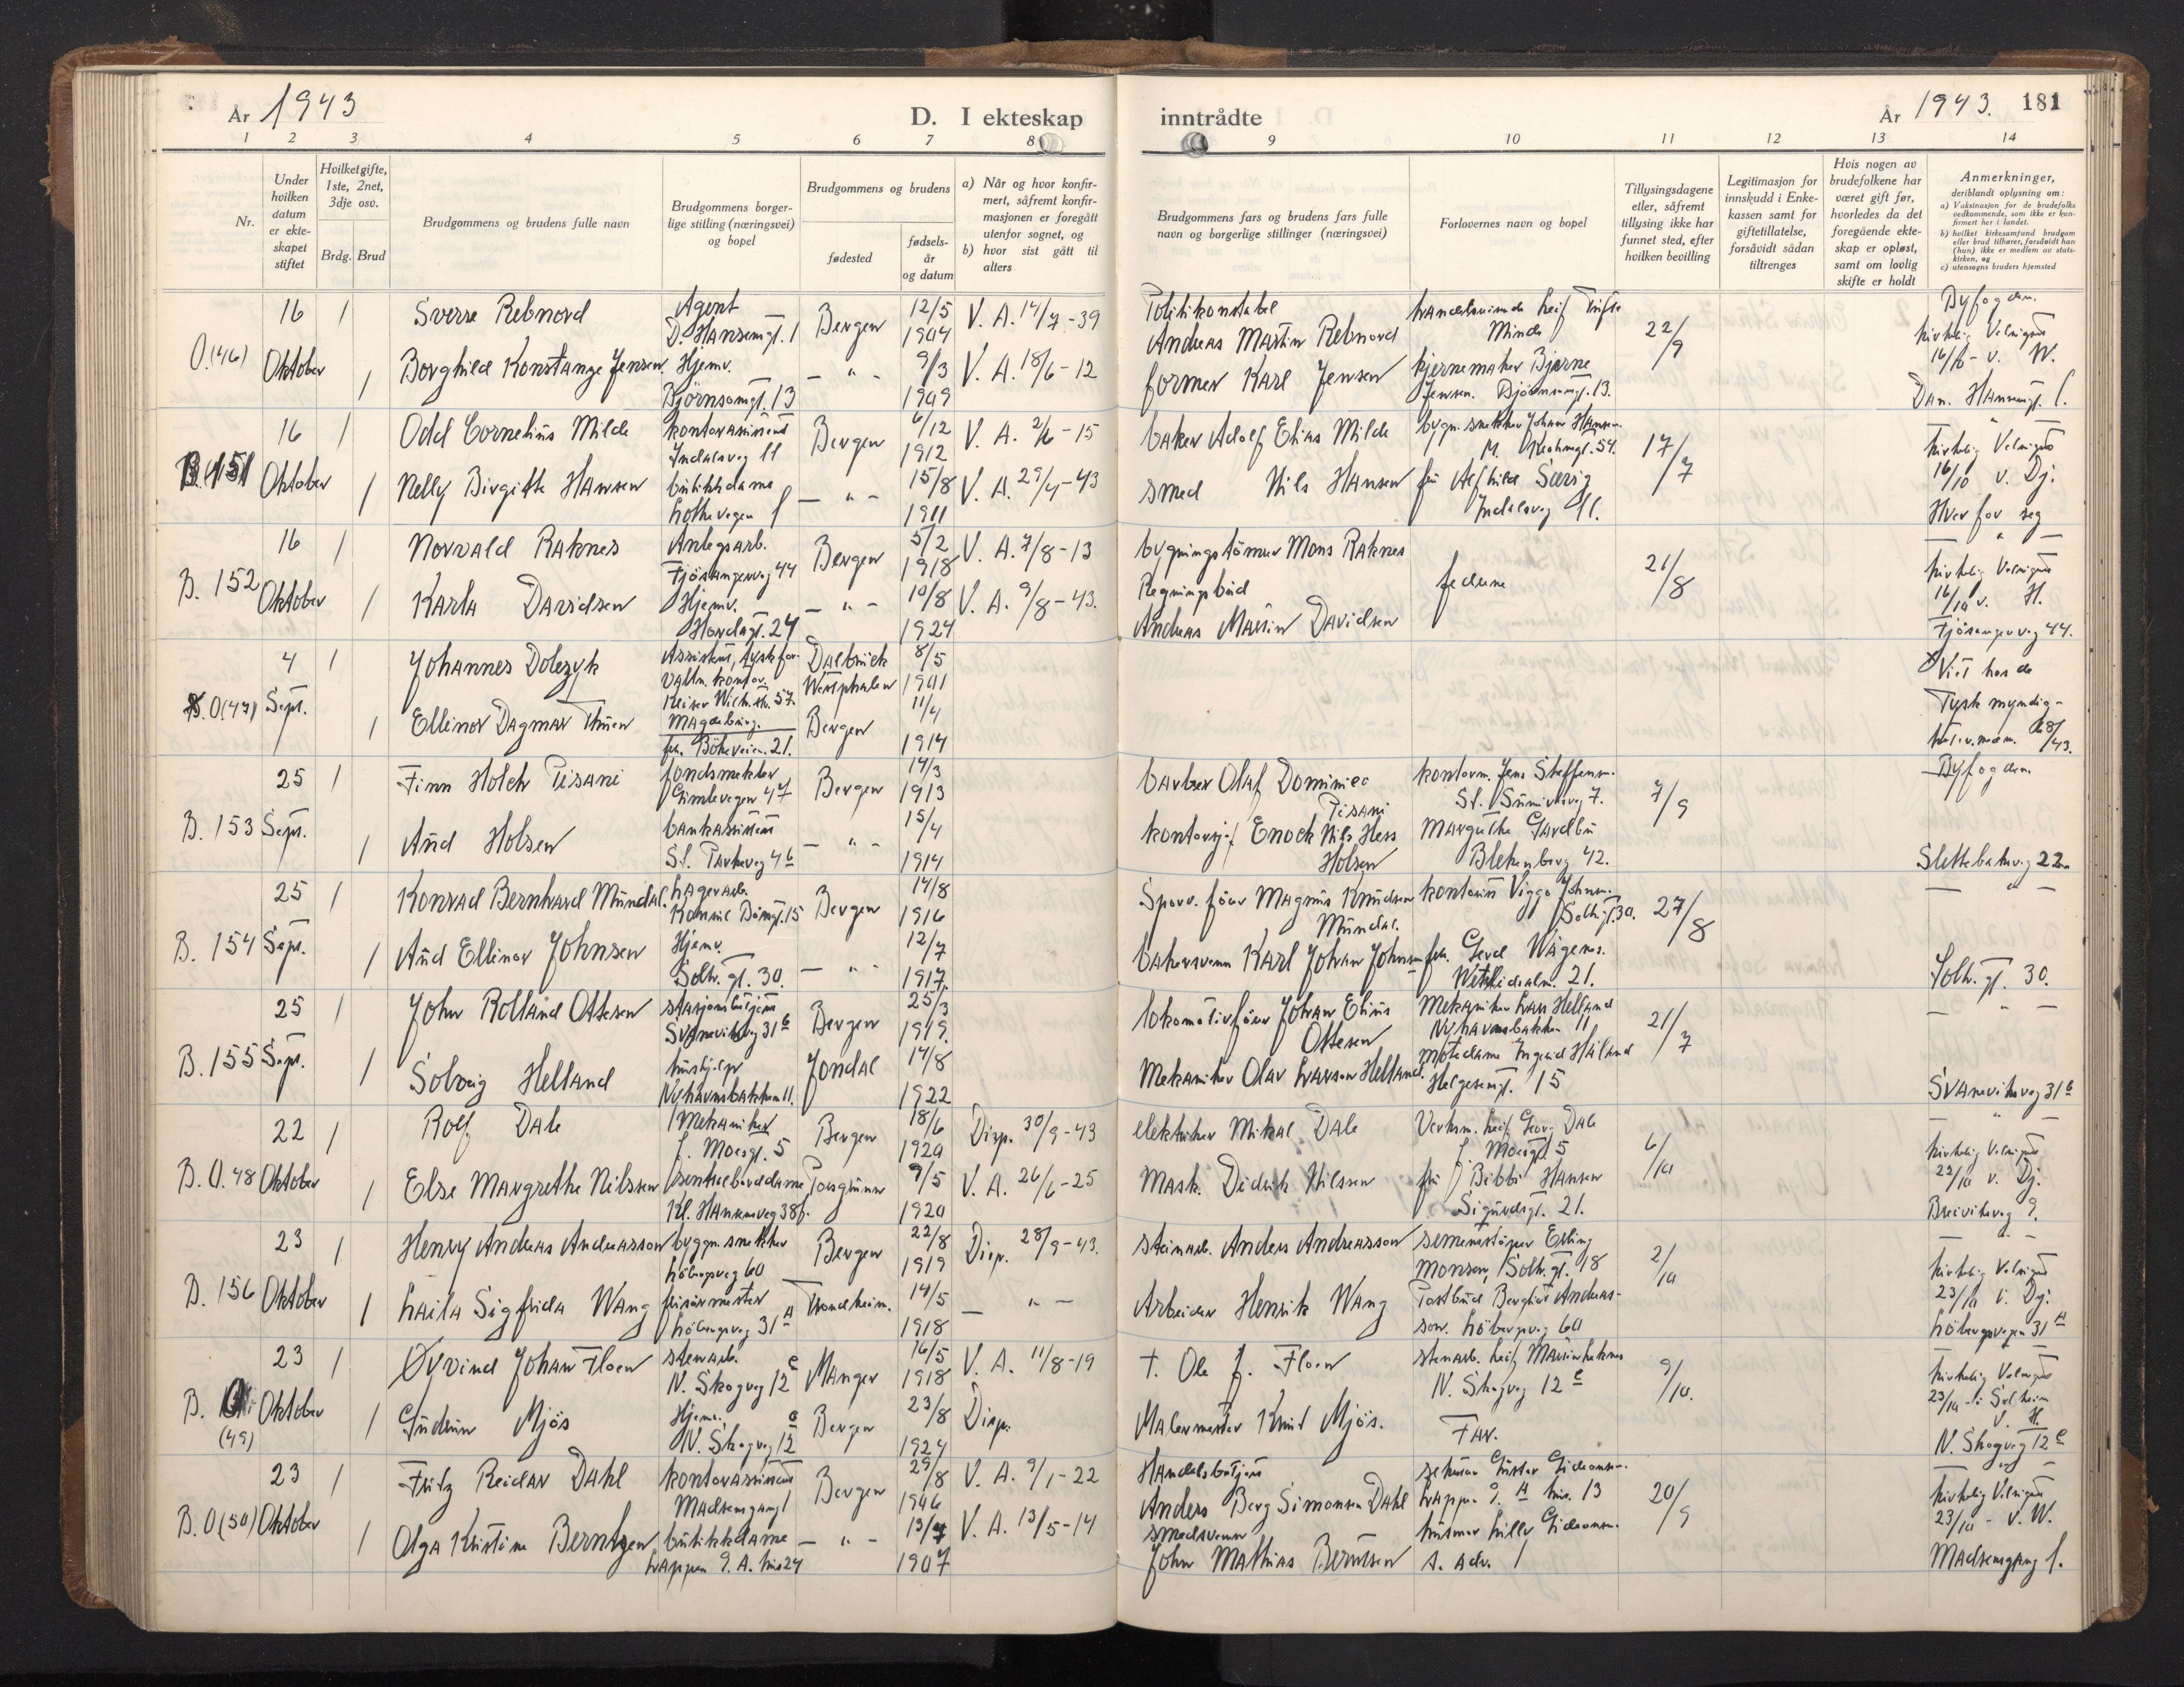 År 1943
D. I ekteskap
inntrådte
År 1943. 181
1 2 3 4 5 6 7 8
9 10 11 12 13 14
Nr.
Under hvilken datum er ekteskapet stiftet
Hvilketgifte, 1ste, 2net, 3dje osv.
Brdg. Brud
Brudgommens og brudens fulle navn
Brudgommens borgerlige stilling (næringsvei) og bopel
Brudgommens og brudens
fødested
fødselsår og datum
a) Når og hvor konfirmert, såfremt konfirmasjonen er foregått utenfor sognet, og
b) hvor sist gått til alters
Brudgommens fars og brudens fars fulle navn og borgerlige stillinger (næringsvei)
Forlovernes navn og bopel
Tillysingsdagene eller, såfremt tillysing ikke har funnet sted, efter hvilken bevilling
Legitimasjon for innskudd i Enkekassen samt for giftetillatelse, forsåvidt sådan tiltrenges
Hvis nogen av brudefolkene har været gift før, hvorledes da det foregående ekteskap er opløst, samt om lovlig skifte er holdt
Anmerkninger,
deriblandt oplysning om:
a) Vaksinasjon for de brudefolks vedkommende, som ikke er konfirmert her i landet.
b) hvilket kirkesamfund brudgom eller brud tilhører, forsåvidt han (hun) ikke er medlem av statskirken, og
c) utensogns bruders hjemsted
O.(46) 16 Oktober 1
Sverre Rebnord Agent D. Hansensgt. 1 Bergen 12/5 1904 V. A. 14/7-39
Politikonstabel Andreas Martin Rebnord
Minde 22/9
Byfogden.
1 Borghild Konstange Jensen. Hjemv. Bjørnsonsgt. 13 - " - 9/3 1909 V. A. 18/6-12
former Karl Jensen
kjernemaker Bjarne Jensen. Bjørnsonsgt. 13.
Dan. Hansensgt. 1.
B. 151 16 Oktober 1
Odd Cornelius Milde kontorassistent Indalsveg 11 Bergen 6/12 1912 V. A. 2/6-15
baker Adolf Elias Milde
bygn. snekker Johan Hansen
17/7
kirkelig Velsignet
16/10 v. Dj.
1 Nelly Birgitte Hansen butikkdame Lothevegen 1 - " - 15/8 1911 V. A. 29/4-43
smed Nils Hansen
Indalsveg 11.
Hver for seg
B. 152 16 Oktober 1
Norvald Raknes Anlegsarb. Fjøsangerveg 44 Bergen 5/2 1918 V. A. 7/8-13
bygningstømrer Mons Raknes
fedrene 21/8
- " -
kirkelig Velsignet
16/10 v. H.
1 Karla Davidsen Hjemv. Hordagt. 24 - " - 10/8 1924 V. A. 9/8-43.
Regningsbud Andreas Martin Davidsen
Fjøsangerveg 44.
B. O(47) 4 Sept. 1
Johannes Dolezyk Assistent, tysk forvaltn. kontor. Keiser Wilh. str. 57. Magdeburg. Dalbrück Westphalen 8/5 1911
Viet hos de Tysk myndig-
1 Ellinor Dagmar Thuen frk. Bøheveien. 21. Bergen 11/4 1914
B. 153 25 Sept. 1
Finn Holch Pisani fondsmekler Gimlevegen 47 Bergen 14/3 1913
barber Olaf Dominico Pisani
kontorm. Jens Steffensen. St. Sunnivaveg 7.
7/9
Byfogden.
1 Aud Holsen bankassistent St. Parkveg 4b - " - 15/4 1914
kontorsjef Enoch Nils Hess Holsen
Margrethe Gardbu Blekenberg 42.
Slettebakveg 22
B. 154 25 Sept. 1
Konrad Bernhard Mundal. Lagerarb. Konsul Børsgt. 15 Bergen 14/8 1916
Sporv. fører Magnus Knudsen Mundal.
kontorist Viggo Johnsen. Solh.gt. 30.
27/8
- " -
1 Aud Ellinor Johnsen Hjemv. Solh. gt. 30. - " - 12/7 1917.
bakersvenn Karl Johan Johnsen
frk. Gerd Wågenes. Wetrlidsalm. 21.
Solh. gt. 30.
B. 155 25 Sept. 1
John Rolland Ottesen stasjonsbetjent Svaneviksveg 31b Bergen 25/3 1919.
lokomotivfører Johan Elius Ottesen
Mekaniker Lars Helland Nyhavnsbakken 11
21/7
- " -
1 Solveig Helland hushjelp Nyhavnsbakken 11. Jondal 14/8 1922
Mekaniker Olav Larsen Helland.
motedame Ingrid Håland Helgesensgt. 15
Svaneviksveg 31b
B. O. 48 22 Oktober 1
Rolf Dale Mekaniker J. Moesgt. 5 Bergen 18/6 1920 Disp. 30/9-43
elektriker Mikal Dale
Verksm. Leif Georg Dale J. Moesgt 5
6/10
- " -
kirkelig Velsignet
22/10 v. Dj.
1 Else Margrethe Nilssen sentralborddame Kl. Hansensveg 38f. Porsgrunn 9/5 1920 V. A. 26/6-25
Mask. Didrik Nilssen
fru Bibbi Hansen Sigurdsgt. 21.
Breiviksveg 9.
B. 156 23 Oktober 1
Henry Andreas Andreasson byggn. snekker Løbergsveg 60 Bergen 22/8 1919 Disp. 28/9-43.
steinarb. Anders Andreasson
sementstøper Erling Monsen, Solh. gt. 18
2/10
- " -
kirkelig Velsignet
23/10 v. Dj.
1 Laila Sigfrida Wang frisørmester Løbergsveg 31A Trondheim. 14/5 1918 - " -
Arbeider Henrik Wang
Postbud Bergliot Andreasson. Løbergsveg 60
Løbergsvegen 31A
B. O (49) 23 Oktober 1
Øyvind Johan Floen stenarb. N. Skogveg 12c Manger 16/5 1918 V. A. 11/8-19
+. Ole J. Floen
N. Skogveg 12c
9/10.
kirkelig Velsignet
23/10 i Solheim
v. H.
1 Gudrun Mjøs Hjemv. N. Skogveg 12c Bergen 23/8 1924 Disp.
Malermester Knut Mjøs.
Far.
N. Skogveg 12c
B. O(50) 23 Oktober 1
Fritz Reidar Dahl kontorassistent Madsensgang 1 Bergen 29/8 1906 V. A. 9/1-22
Handelsbetjent Anders Berg Simonsen Dahl
20/9
- " -
kirkelig Velsignet
23/10 - v. W.
1 Olga Kristine Berntzen butikkdame Lappen 9. A. hus 24 - " - 13/7 1907 V. A. 13/5-14
smedsvenn John Mathias Berntsen
Madsensgang 1.